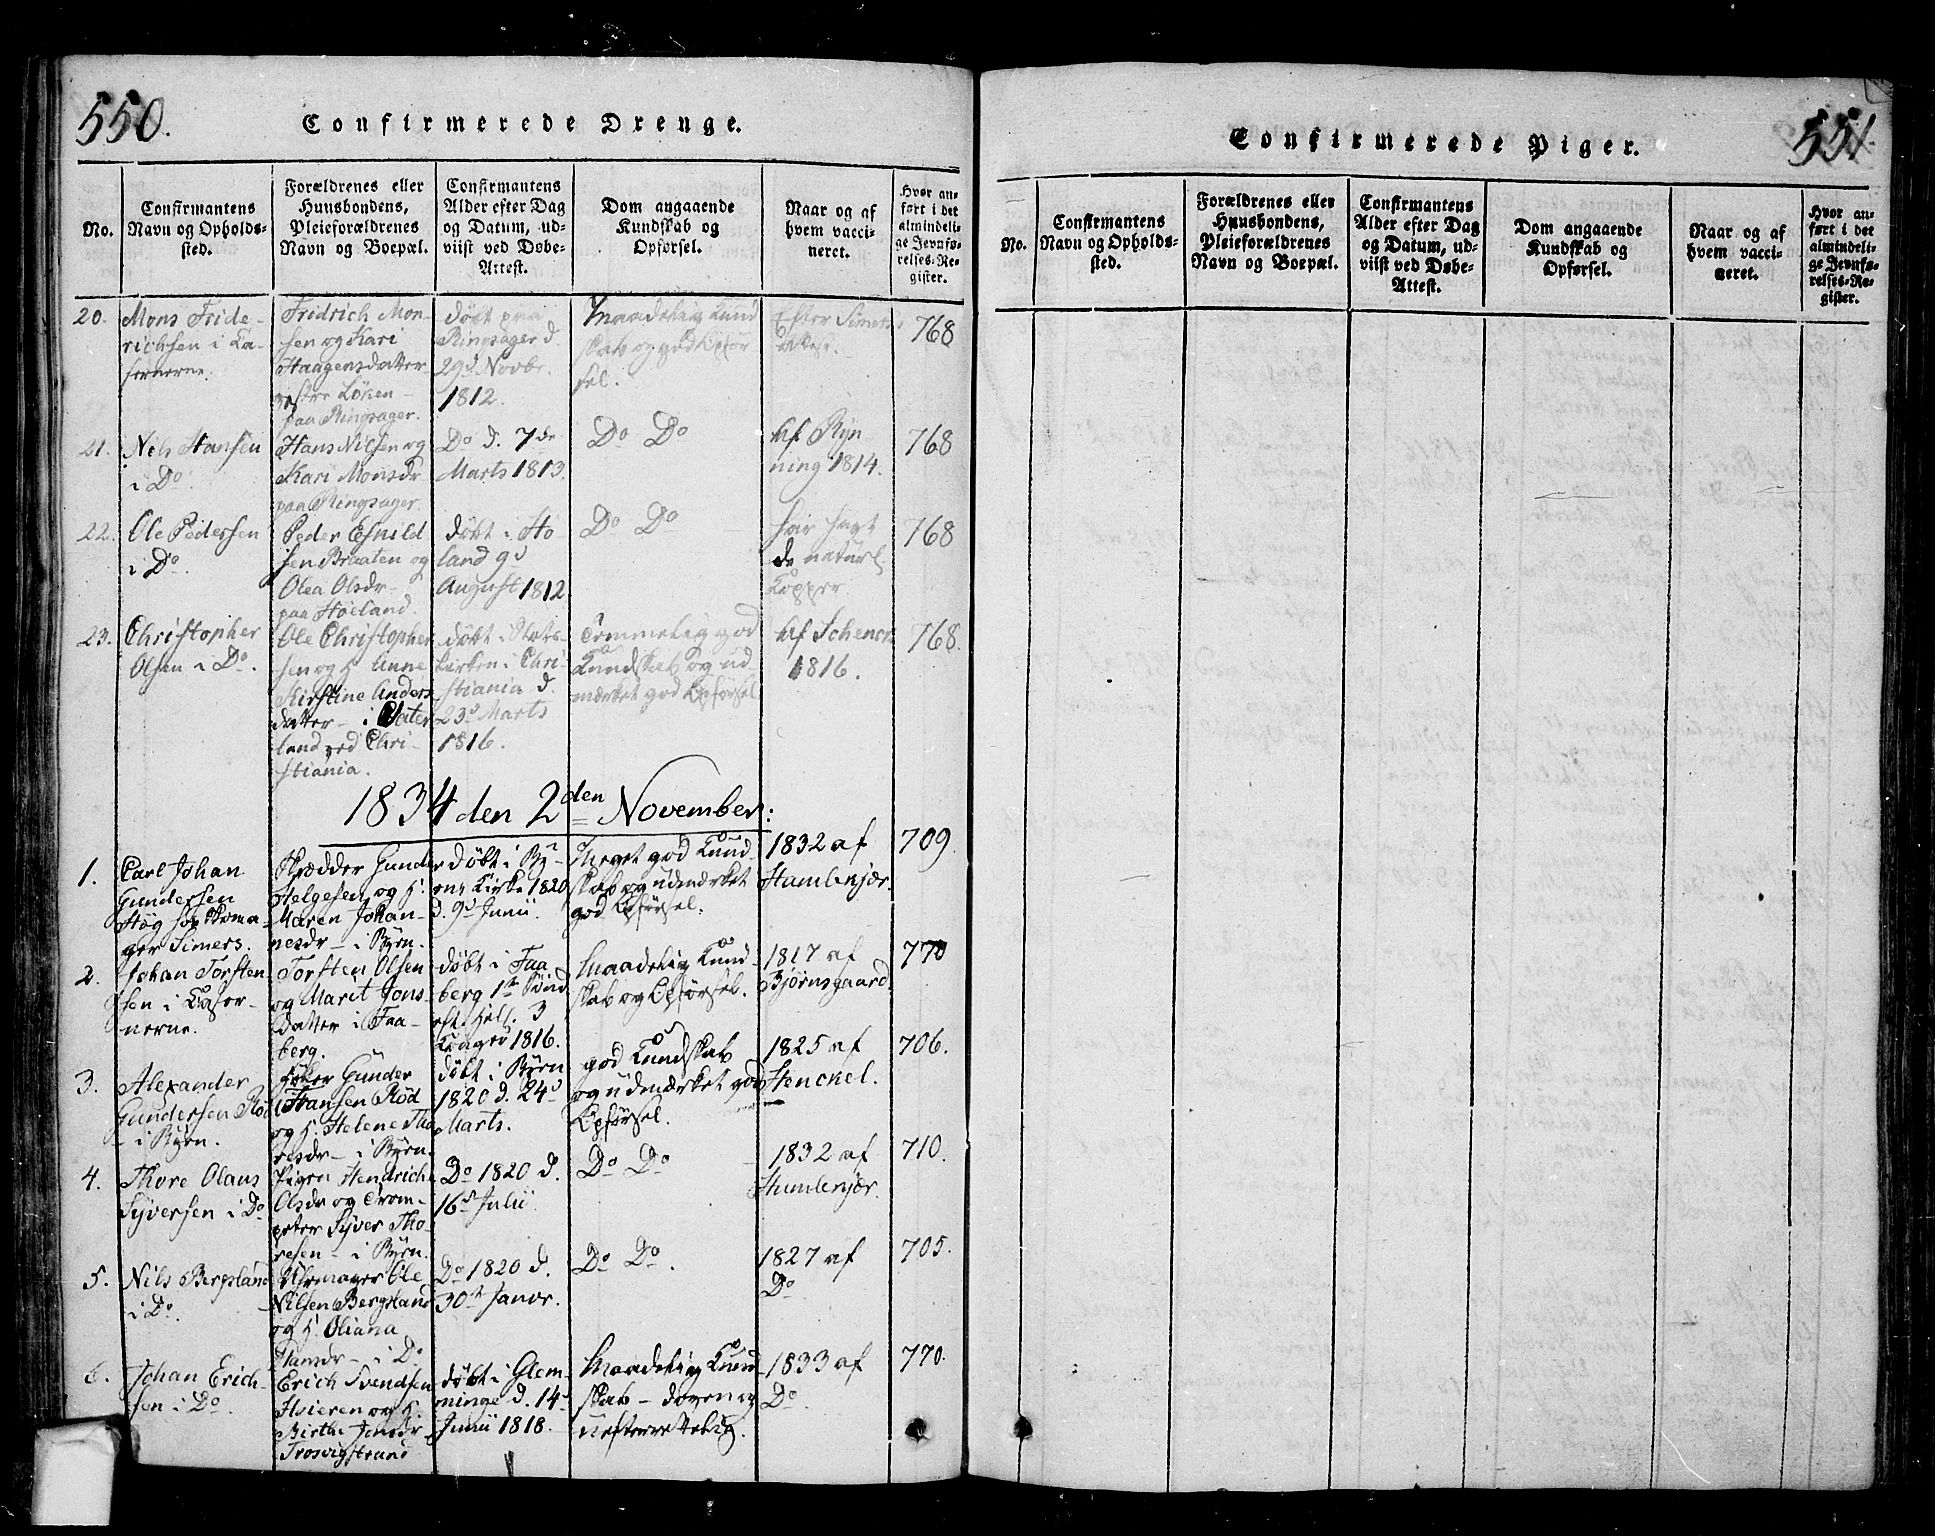 550.
Confirmerede Drenge.
No.
Confirmantens
Navn og Opholds-
sted.
Forældrenes eller
Huusbondens,
Pleieforældrenes
Navn og Boepæl.
Confirmantens
Alder efter Dag
og Datum, ud-
viist ved Døbe-
Attest.
Dom angaaende
Kundskab og
Opførsel.
Naar og af
hvem vacci-
neret.
Hvor an-
ført i det
almindeli-
ge Jevnfø-
relses-Re-
gister.
20.
Mons Fride-
richsen i Ca-
sernerne.
Fridrich Mon-
sen og Kari
Haagensdatter
vestre Löken
paa Ringsager.
döbt paa
Ringsager d.
29d Novbr.
1812.
Maadelig Kund
skab og god Opför
sel.
Efter Simers
attest.
768
21.
Nels Hansen
i Do
Hans Nilsen og
Kari Monsdr
paa Ringsager.
Do d. 7de
Marts 1813.
Do Do
Af Ryn
ning 1814.
768
22.
Ole Pedersen
i Do.
Peder Esnild
sen Braaten og
Olea Olsdr
paa Höeland.
döbt i Hö
land 9d
August 1812
Do Do
har havt
de naturl.
Kopper.
768
23.
Christopher
Olsen i Do.
Ole Christopher
sen og H. Anne
Kirstine Anders
datter - i Vater
land ved Chri-
stiania.
döbt i Slots-
kirken i Chri-
stiania d.
23d Marts
1816.
Temmelig god
Kundskab og ud
mærket god Opförsel
Af Schencr
1816.
768.
1834 den 2den November:
1.
Carl Johan
Gundersen
Hög hos Skoma
ger Simers.
Skrædder Gunder
Helgesen og H.
Maren Johan-
nesdr - i Byen.
döbt i By-
ens Kirke 1820
d. 9d Junii.
Meget god Kund-
skab og udmærket
god Opförsel.
1832 af
Humlenjær.
709.
2.
Johan Torsten
sen i Caser-
nerne.
Torsten Olsen
og Marit Jons
datter i Faa-
berg.
döbt i Faa
berg 1te Sönd.
eft. Hell. 3
Konger 1816.
Maadelig Kund-
skab og Opförsel.
1817 af
Bjørnsgaard.
770
3.
Alexander
Gundersen Röd
- i Byen.
Gunder
Hansen Röd
og H. Helene Tho
resdr - i Byen.
döbt i Byen
1820 d. 24d
Marts.
god Kundskab
og udmærket god
Opförsel.
1825 af
Henckel.
706.
4.
Thore Olaus
Syversen i Do
Pigen Hendrich
Olsdr og Trom-
peter Syver Tho-
resen - i Byen.
Do 1820 d.
16d Julii.
Do Do
1832 af
Humlenjær.
710.
5.
Nils Bergsland
i Do.
Uhrmager Ole
Nilsen Bergsland
og H. Oliana
Hansdr - i Do
Do 1820 d.
30te Janvr.
Do Do.
1827 af
Do
705.
6.
Johan Erich-
sen i Do.
Erich Svendsen
og H.
Birthe Jensdr
Trosvigstrand
döbt i Glem-
minge d. 14d
Junii 1818.
Maadelig Kund
skab - doven og
uefterrettelig.
1833 af
Do
770.
551.
Confirmerede Piger.
No.
Confirmantens
Navn og Opholds-
sted.
Forældrenes eller
Huusbondens,
Pleieforældrenes
Navn og Boepæl.
Confirmantens
Alder efter Dag
og Datum, ud-
viist ved Døbe-
Attest.
Dom angaaende
Kundskab og
Opførsel.
Naar og af
hvem vacci-
neret.
Hvor an-
ført i det
almindeli-
ge Jevnfø-
relses-Re-
gister.